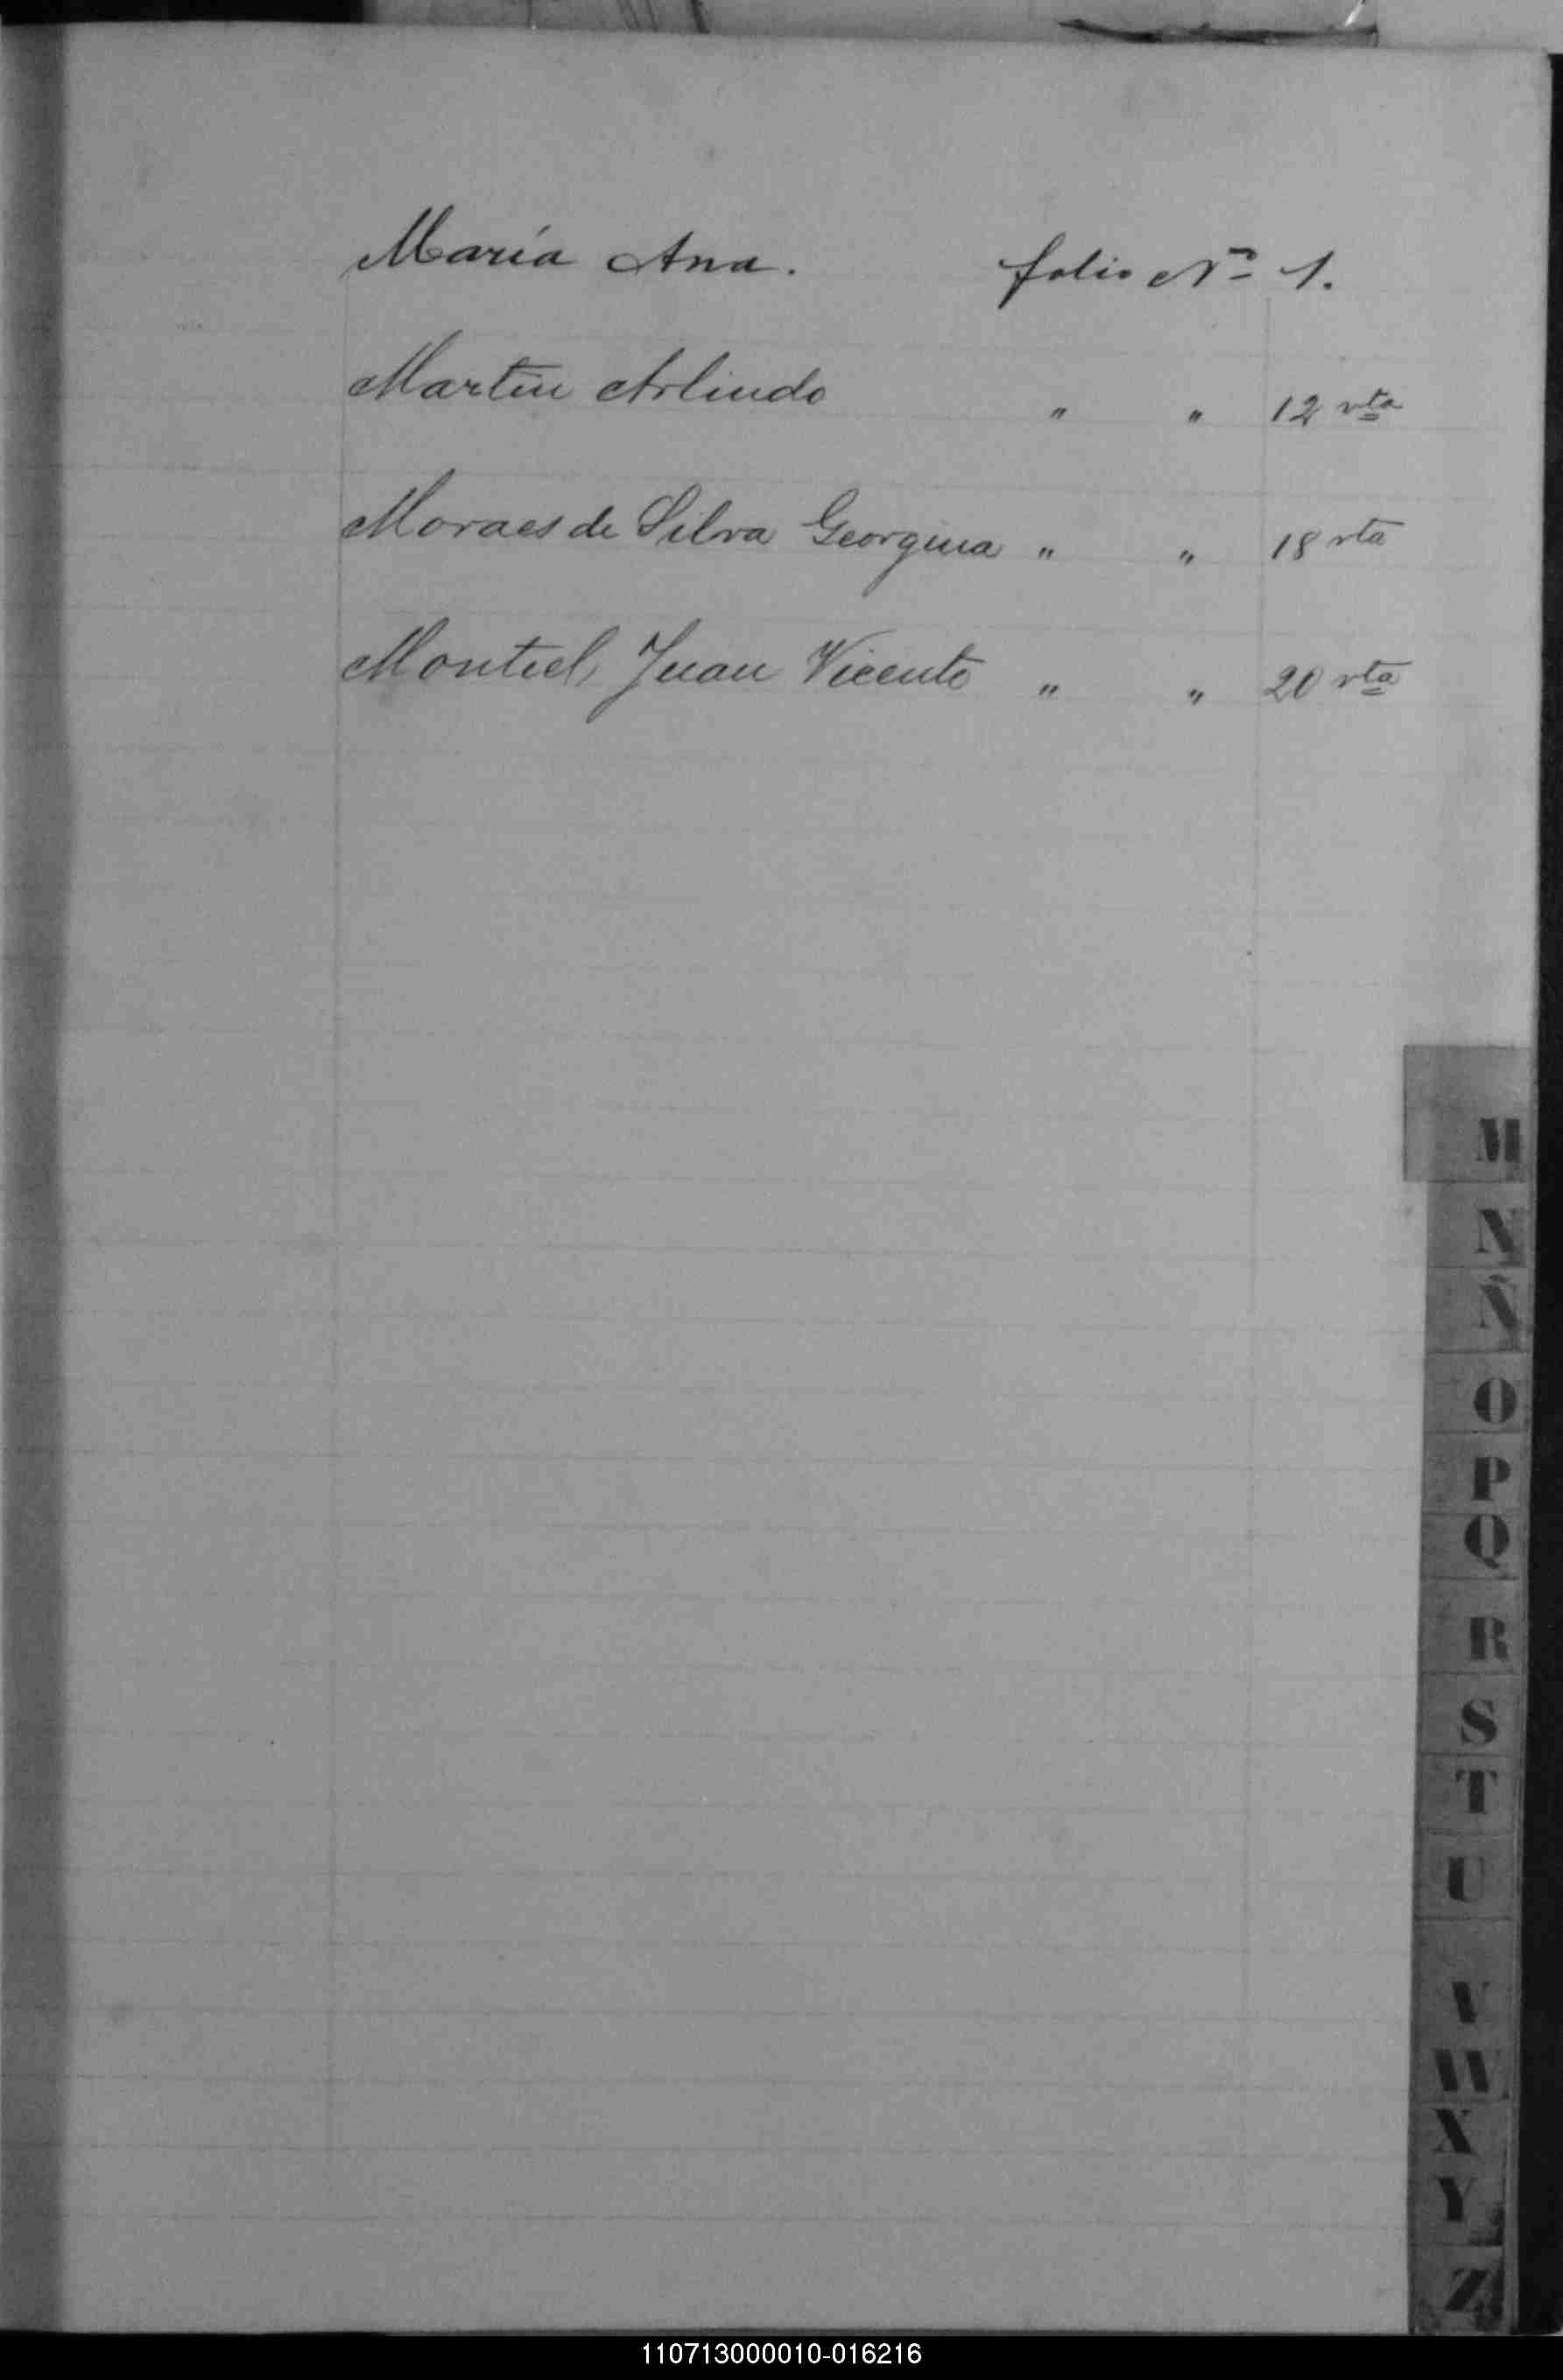 María Ana. folio Nº 1.
Martín Arlindo " " 12 vta
Moraes de Silva Georgina " " 18 vta
Montiel, Juan Vicente " " 20 vta
M
N
Ñ
O
P
Q
R
S
T
U
V
W
X
Y
Z
110713000010-016216